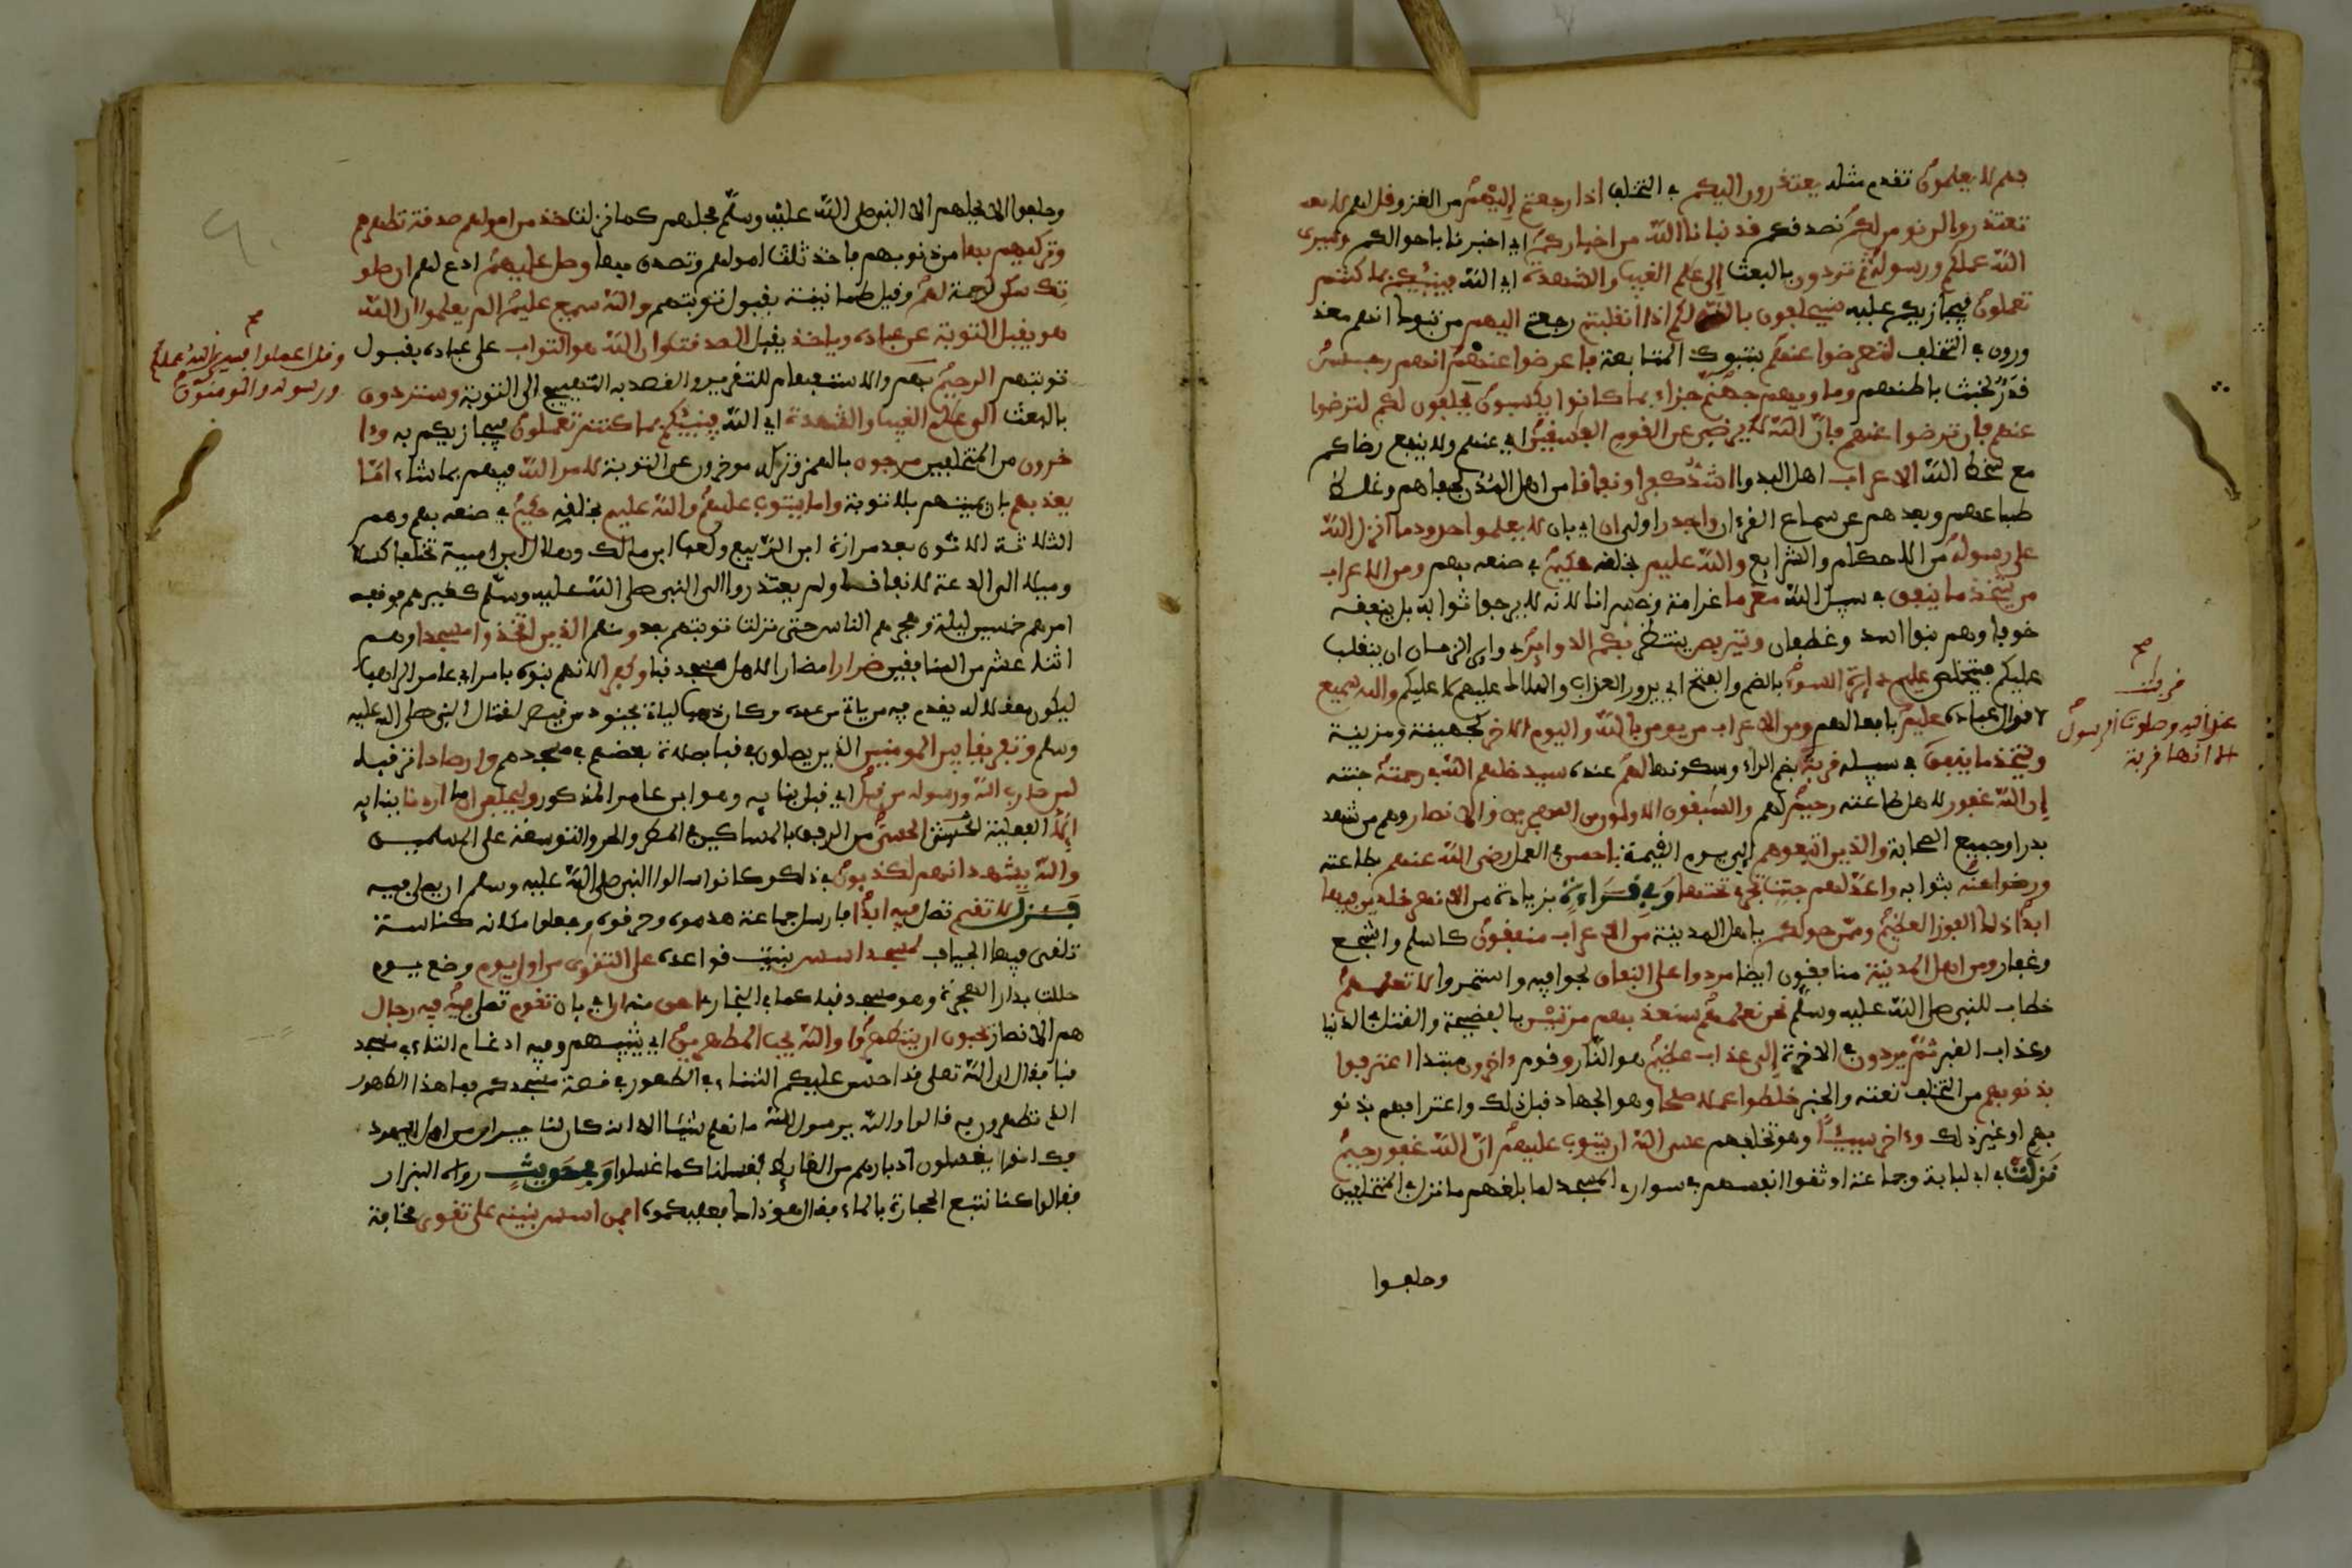 فهم لا يعلمون تقدم مثله يعتذرون اليكم في التخلف اذا رجعتم اليهم من الغزو قل لهم لا
تعتذروا لن نومن لكم نصدقكم قد نبانا الله من اخباركم اي اخبرنا باحوالكم وسيرى
الله عملكم ورسوله ثم تردون بالبعث الى علم الغيب والشهدة اي الله فينبيكم بما كنتم
تعملون فيجازيكم عليه سيحلفون بالله لكم اذا انقلبتم رجعتم اليهم من تبوك انهم معذ
ورون في التخلف لتعرضوا عنهم بترك المتابعة فاعرضوا عنهم انهم رجس
قذر لخبث باطنهم وماويهم جهنم جزاء بما كانوا يكسبون يحلفون لكم لترضوا
عنهم فان ترضوا عنهم فان الله لا يرضى عن القوم الفسقين اي عنهم ولا ينفع رضاكم
مع سخط الله الاعراب اهل البدو اشد كفرا ونفاقا من اهل المدن لجفاهم وغلظ
طباعهم وبعدهم عن سماع القرءان واجدر اولى ان اي بان لا يعلموا حدود ما انزل الله
على رسوله من الاحكام والشرايع والله عليم بخلقه حكيم في صنعه بهم ومن الاعراب
من يتخذ ما ينفق في سبيل الله مغرما غرامة وخسرانا لانه لا يرجوا ثوابه بل ينفقه
خوفا وهم بنوا اسد وغطفان ويتربص ينتظر بكم الدواير دواير الزمان ان ينقلب
عليكم فيتخلص عليهم دايرة السوء بالضم والفتح اي يدور العذاب والهلاك عليهم لا عليكم والله سميع
لاقوال عباده عليم بافعالهم ومن الاعراب من يومن بالله واليوم الاخر كجهينة ومزينة
ويتخذ ما ينفق في سبيله قربة بضم الراء وسكونها لهم عنده سيدخلهم الله في رحمته جنته
ان الله غفور لاهل طاعته رحيم لهم والسبقون الاولون من المهجرين والانصار وهم من شهد
بدرا وجميع الصحابة والذين اتبعوهم الى يوم القيمة باحسن في العمل رضى الله عنهم بطاعته
ورضوا عنه بثوابه واعد لهم جنت تجري تحتها وفي قراءة بزيادة من الانهر خلدين فيها
ابدا ذلك الفوز العظيم وممن حولكم ياهل المدينة من الاعراب منفقون كاسلم واشجع
وغفار ومن اهل المدينة منافقون ايضا مردوا على النفاق لجوا فيه واستمروا لا تعلمهم
خطاب للنبي صلى الله عليه وسلم نحن نعلمهم سنعذبهم مرتين بالفضيحة والقتل في الدنيا
وعذاب القبر ثم يردون في الاخرة الى عذاب عظيم هو النار وقوم ءاخرون مبتدا اعترفوا
بذنوبهم من التخلف نعته والخبر خلطوا عملا صلحا وهو الجهاد قبل ذلك واعترافهم بذنو
بهم او غير ذلك وءاخر سيئا وهو تخلفهم عسى الله ان يتوب عليهم ان الله غفور رحيم
نزلت في ابي لبابة وجماعة اوثقوا انفسهم في سواري المسجد لما بلغهم ما نزل في المتخلفين
وحلفوا
قربات
عند الله وصلوت الرسول
الا انها قربة
وحلفوا الا يحلهم الا النبي صلى الله عليه وسلم فحلهم كما نزلت خذ من امولهم صدقة تطهرهم
وتزكيهم بها من ذنوبهم فاخذ ثلث امولهم وتصدق بها وصل عليهم ادع لهم ان صلو
تك سكن رحمة لهم وقيل طمانينة بقبول توبتهم والله سميع عليم الم يعلموا ان الله
هو يقبل التوبة عن عباده وياخذ يقبل الصدقت وان الله هو التواب على عباده بقبول
توبتهم الرحيم بهم والاستفهام للتقرير والقصد به التهييج الى التوبة وستردون
بالبعث الى علم الغيب والشهدة اي الله فينبيكم بما كنتم تعملون فيجازيكم به وءا
خرون من المتخلفين مرجون بالهمز وتركه موخرون عن التوبة لامر الله فيهم بما شاء اما
يعذبهم بان يميتهم بلا توبة واما يتوب عليهم والله عليم بخلقه حكيم في صنعه بهم وهم
الثلاثة الاتون بعد مرارة ابن الربيع وكعب ابن مالك وهلال ابن امية تخلفوا كسلا
وميلا الى الدعة لا نفاقا ولم يعتذروا الى النبي صلى الله عليه وسلم كغيرهم فوقف
امرهم خمسين ليلة وهجرهم الناس حتى نزلت توبتهم بعد ومنهم الذين اتخذوا مسجدا وهم
اثنا عشر من المنافقين ضرارا مضارا لاهل مسجد قبا وكفرا لانهم بنوه بامر ابي عامر الراهب
ليكون معقلا له يقدم فيه من ياتي من عنده وكان ذهب لياتي بجنود من قيصر لقتال النبي صلى الله عليه
وسلم وتفريقا بين المومنين الذين يصلون في قبا بصلاة بعضهم في مسجدهم وارصادا ترقبا
لمن حارب الله ورسوله من قبل اي قبل بنايه وهو ابن عامر المذكور وليحلفن ان ما اردنا ببنايه
الا الفعلة الحسنى من الرفق بالمساكين في المطر والحر والتوسعة على المسلمين
والله يشهد انهم لكذبون في ذلك وكانوا سالوا النبي صلى الله عليه وسلم ان يصلي فيه
فنزل لا تقم تصل فيه ابدا فارسل جماعة هدموه وحرقوه وجعلوا مكانه كناسة
تلقى فيها الجياف لمسجد اسس بنيت قواعده على التقوى من اول يوم وضع يوم
حللت بدار الهجرة وهو مسجد قبا كما في البخاري احق منه ان اي بان تقوم تصلي فيه فيه رجال
هم الانصار يحبون ان يتطهروا والله يحب المطهرين اي يثيبهم وفيه ادغام التاء في مسجد
قبا فقال ان الله تعلى قد احسن عليكم الثناء في الطهور في قصة مسجدكم فما هذا الطهور
الذي تطهرون به قالوا والله يرسول الله ما نعلم شيئا الا انه كان لنا جيران من اليهود
فكانوا يغسلون ادبارهم من الغايط فغسلنا كما غسلوا وفي حديث رواه البزار
فقالوا كنا نتبع الحجارة بالماء فقال هو ذاك فعليكموه افمن اسس بنينه على تقوى مخافة
وقل اعملوا فسيرى الله عملكم
ورسوله والمومنون